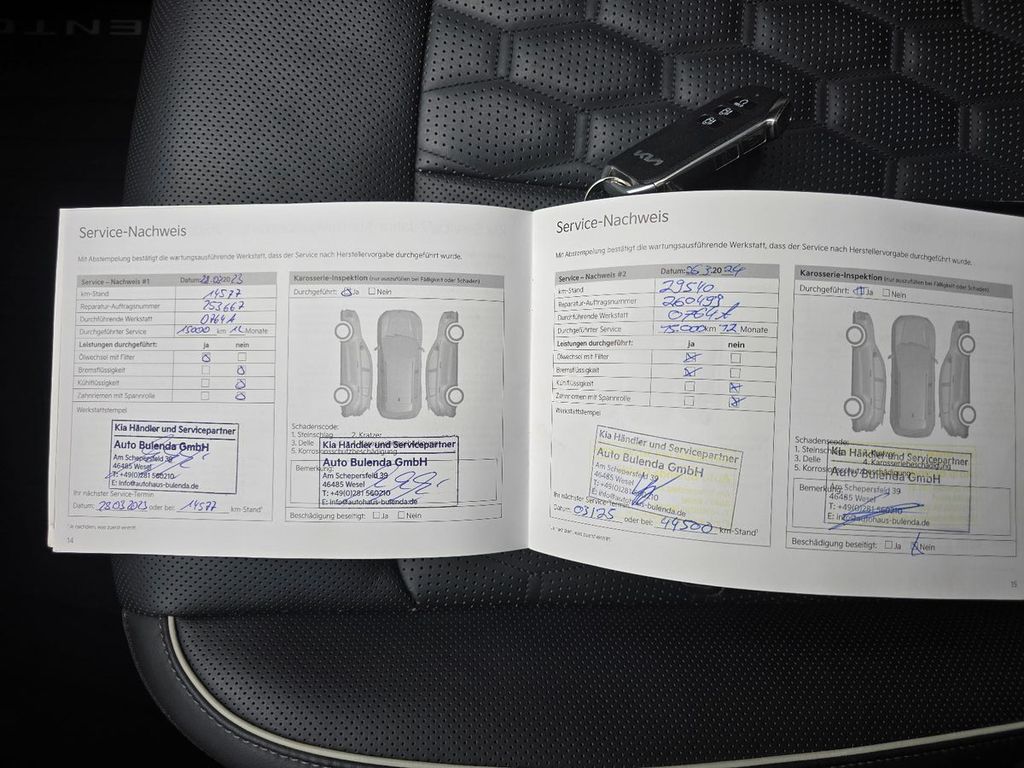 ENTO
Service-Nachweis
Mit Abstempelung bestätigt die wartungsausführende Werkstatt, dass der Service nach Herstellervorgabe durchgeführt wurde.
Service – Nachweis #1 Datum: 28.03.2023
km-Stand 14577
Reparatur-Auftragsnummer 253667
Durchführende Werkstatt 0764A
Durchgeführter Service 15000 km 12 Monate
Leistungen durchgeführt: ja nein
Ölwechsel mit Filter
Bremsflüssigkeit
Kühlflüssigkeit
Zahnriemen mit Spannrolle
Werkstattstempel
Kia Händler und Servicepartner
Auto Bulenda GmbH
Am Schepersfeld 39
46485 Wesel
T: +49(0)281 560210
E: info@autohaus-bulenda.de
Ihr nächster Service-Termin
Datum: 28.03.2023 oder bei: 14577 km-Stand¹
¹ Je nachdem, was zuerst eintritt.
14
Karosserie-Inspektion (nur auszufüllen bei Fälligkeit oder Schaden)
Durchgeführt: Ja Nein
Schadenscode:
1. Steinschlag 2. Kratzer
3. Delle
5. Korrosionsschutzbeschädigung
Bemerkung:
Kia Händler und Servicepartner
Auto Bulenda GmbH
Am Schepersfeld 39
46485 Wesel
T: +49(0)281 560210
E: info@autohaus-bulenda.de
Beschädigung beseitigt: Ja Nein
Service-Nachweis
Mit Abstempelung bestätigt die wartungsausführende Werkstatt, dass der Service nach Herstellervorgabe durchgeführt wurde.
Service – Nachweis #2 Datum: 26.3.2024
km-Stand 29540
Reparatur-Auftragsnummer 260499
Durchführende Werkstatt 0764A
Durchgeführter Service 15.000 km 12 Monate
Leistungen durchgeführt: ja nein
Ölwechsel mit Filter
Bremsflüssigkeit
Kühlflüssigkeit
Zahnriemen mit Spannrolle
Werkstattstempel
Kia Händler und Servicepartner
Auto Bulenda GmbH
Am Schepersfeld 39
46485 Wesel
T: +49(0)281 560210
E: info@autohaus-bulenda.de
Ihr nächster Service-Termin
Datum: 03125 oder bei: 44500 km-Stand¹
Karosserie-Inspektion (nur auszufüllen bei Fälligkeit oder Schaden)
Durchgeführt: Ja Nein
Schadenscode:
1. Steinschlag
3. Delle 4. Karosseriebeschädigung
5. Korrosionsschutzbeschädigung
Bemerkung:
Kia Händler und Servicepartner
Auto Bulenda GmbH
Am Schepersfeld 39
46485 Wesel
T: +49(0)281 560210
E: info@autohaus-bulenda.de
Beschädigung beseitigt: Ja Nein
15